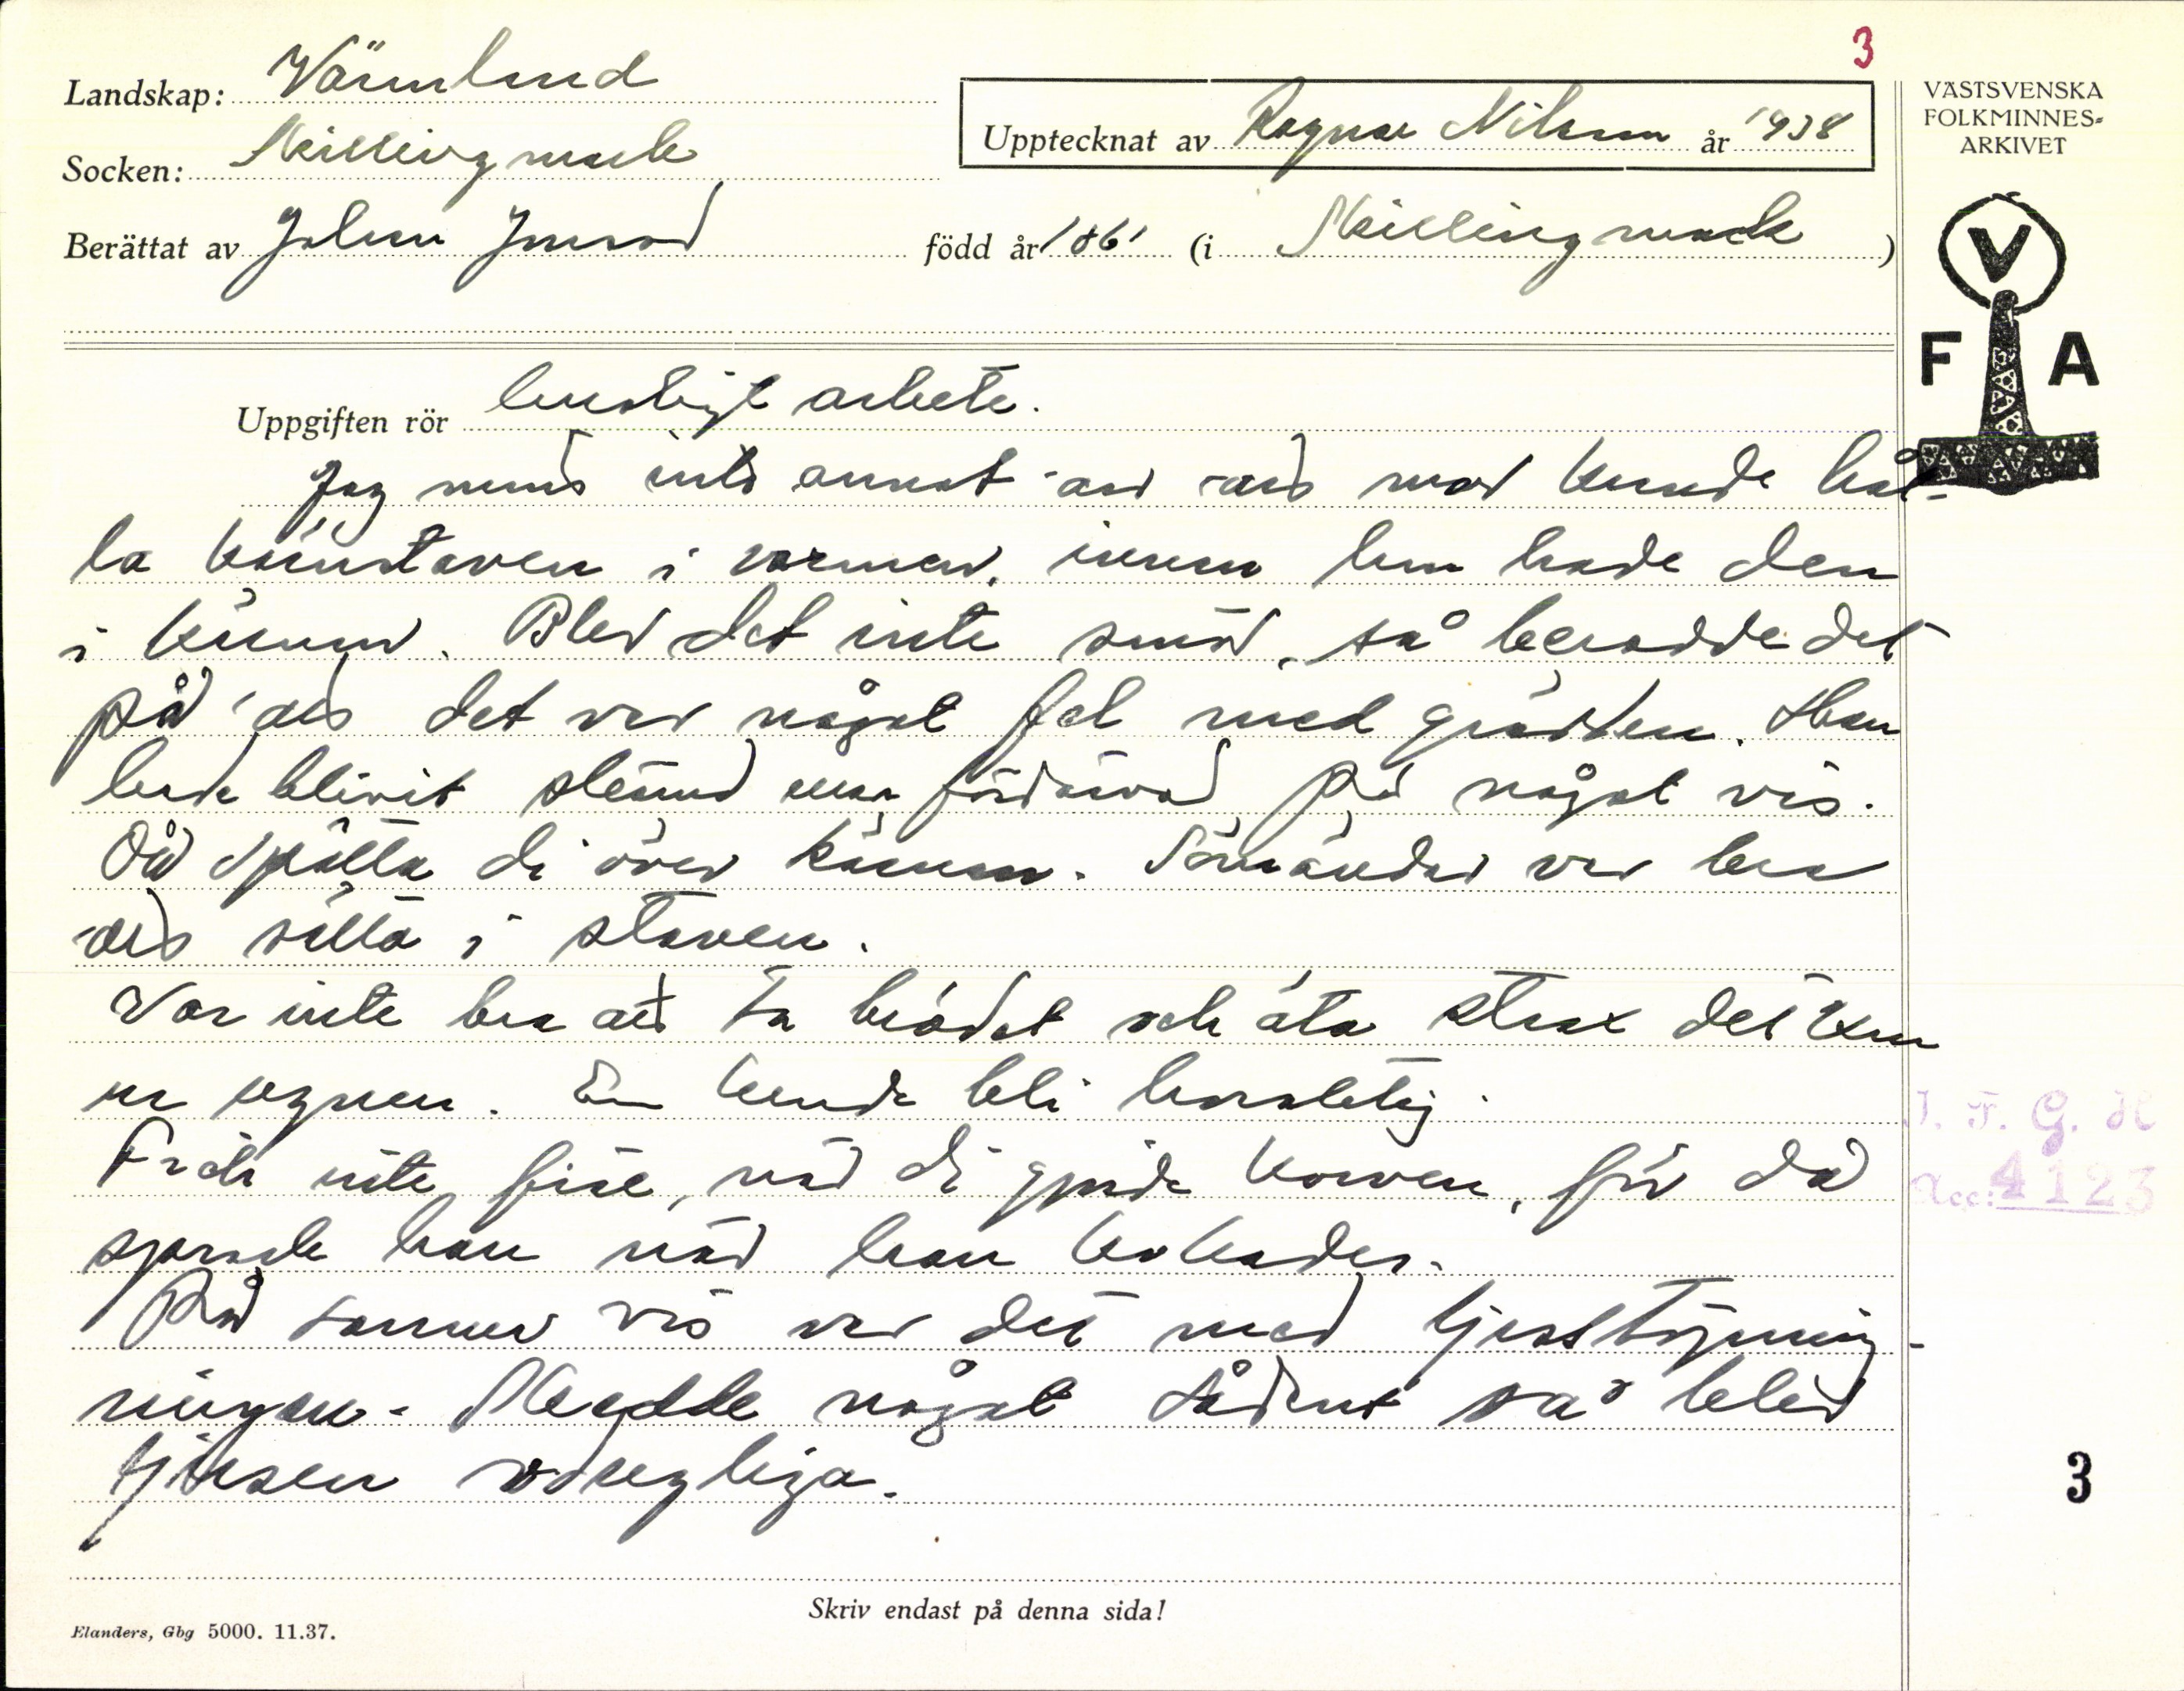 3
Landskap: Värmland
Socken: Skillingmark
Upptecknat av Ragnar Nilsson år 1938
VÄSTSVENSKA
FOLKMINNES-
ARKIVET
Berättat av Johan Jonsson född år 1861 (i Skillingmark)
V
F A
Uppgiften rör husligt arbete.
Jag minns inte annat än att mor kunde hål-
la kärnstaven i varmen, innan hon hade den
i kärnan. Blev det inte smör, så berodde det
på att det var något fel med grädden. Han
hade blivit skämd eller fördärvad på något vis.
Då spotta di över kärnan. var bra
att sätta i staven.
Var inte bra att ta brödet och äta strax det kom
ur ugnen. En kunde bli
Fick inte fise, när di gjorde korven, för då
sprack han när han kokades.
På samma vis var det med
ningen. Skedde något sådant så blev
oduglig
J. F. G. H
Acc: 4123
3
Skriv endast på denna sida!
Elanders, Gbg 5000. 11.37.